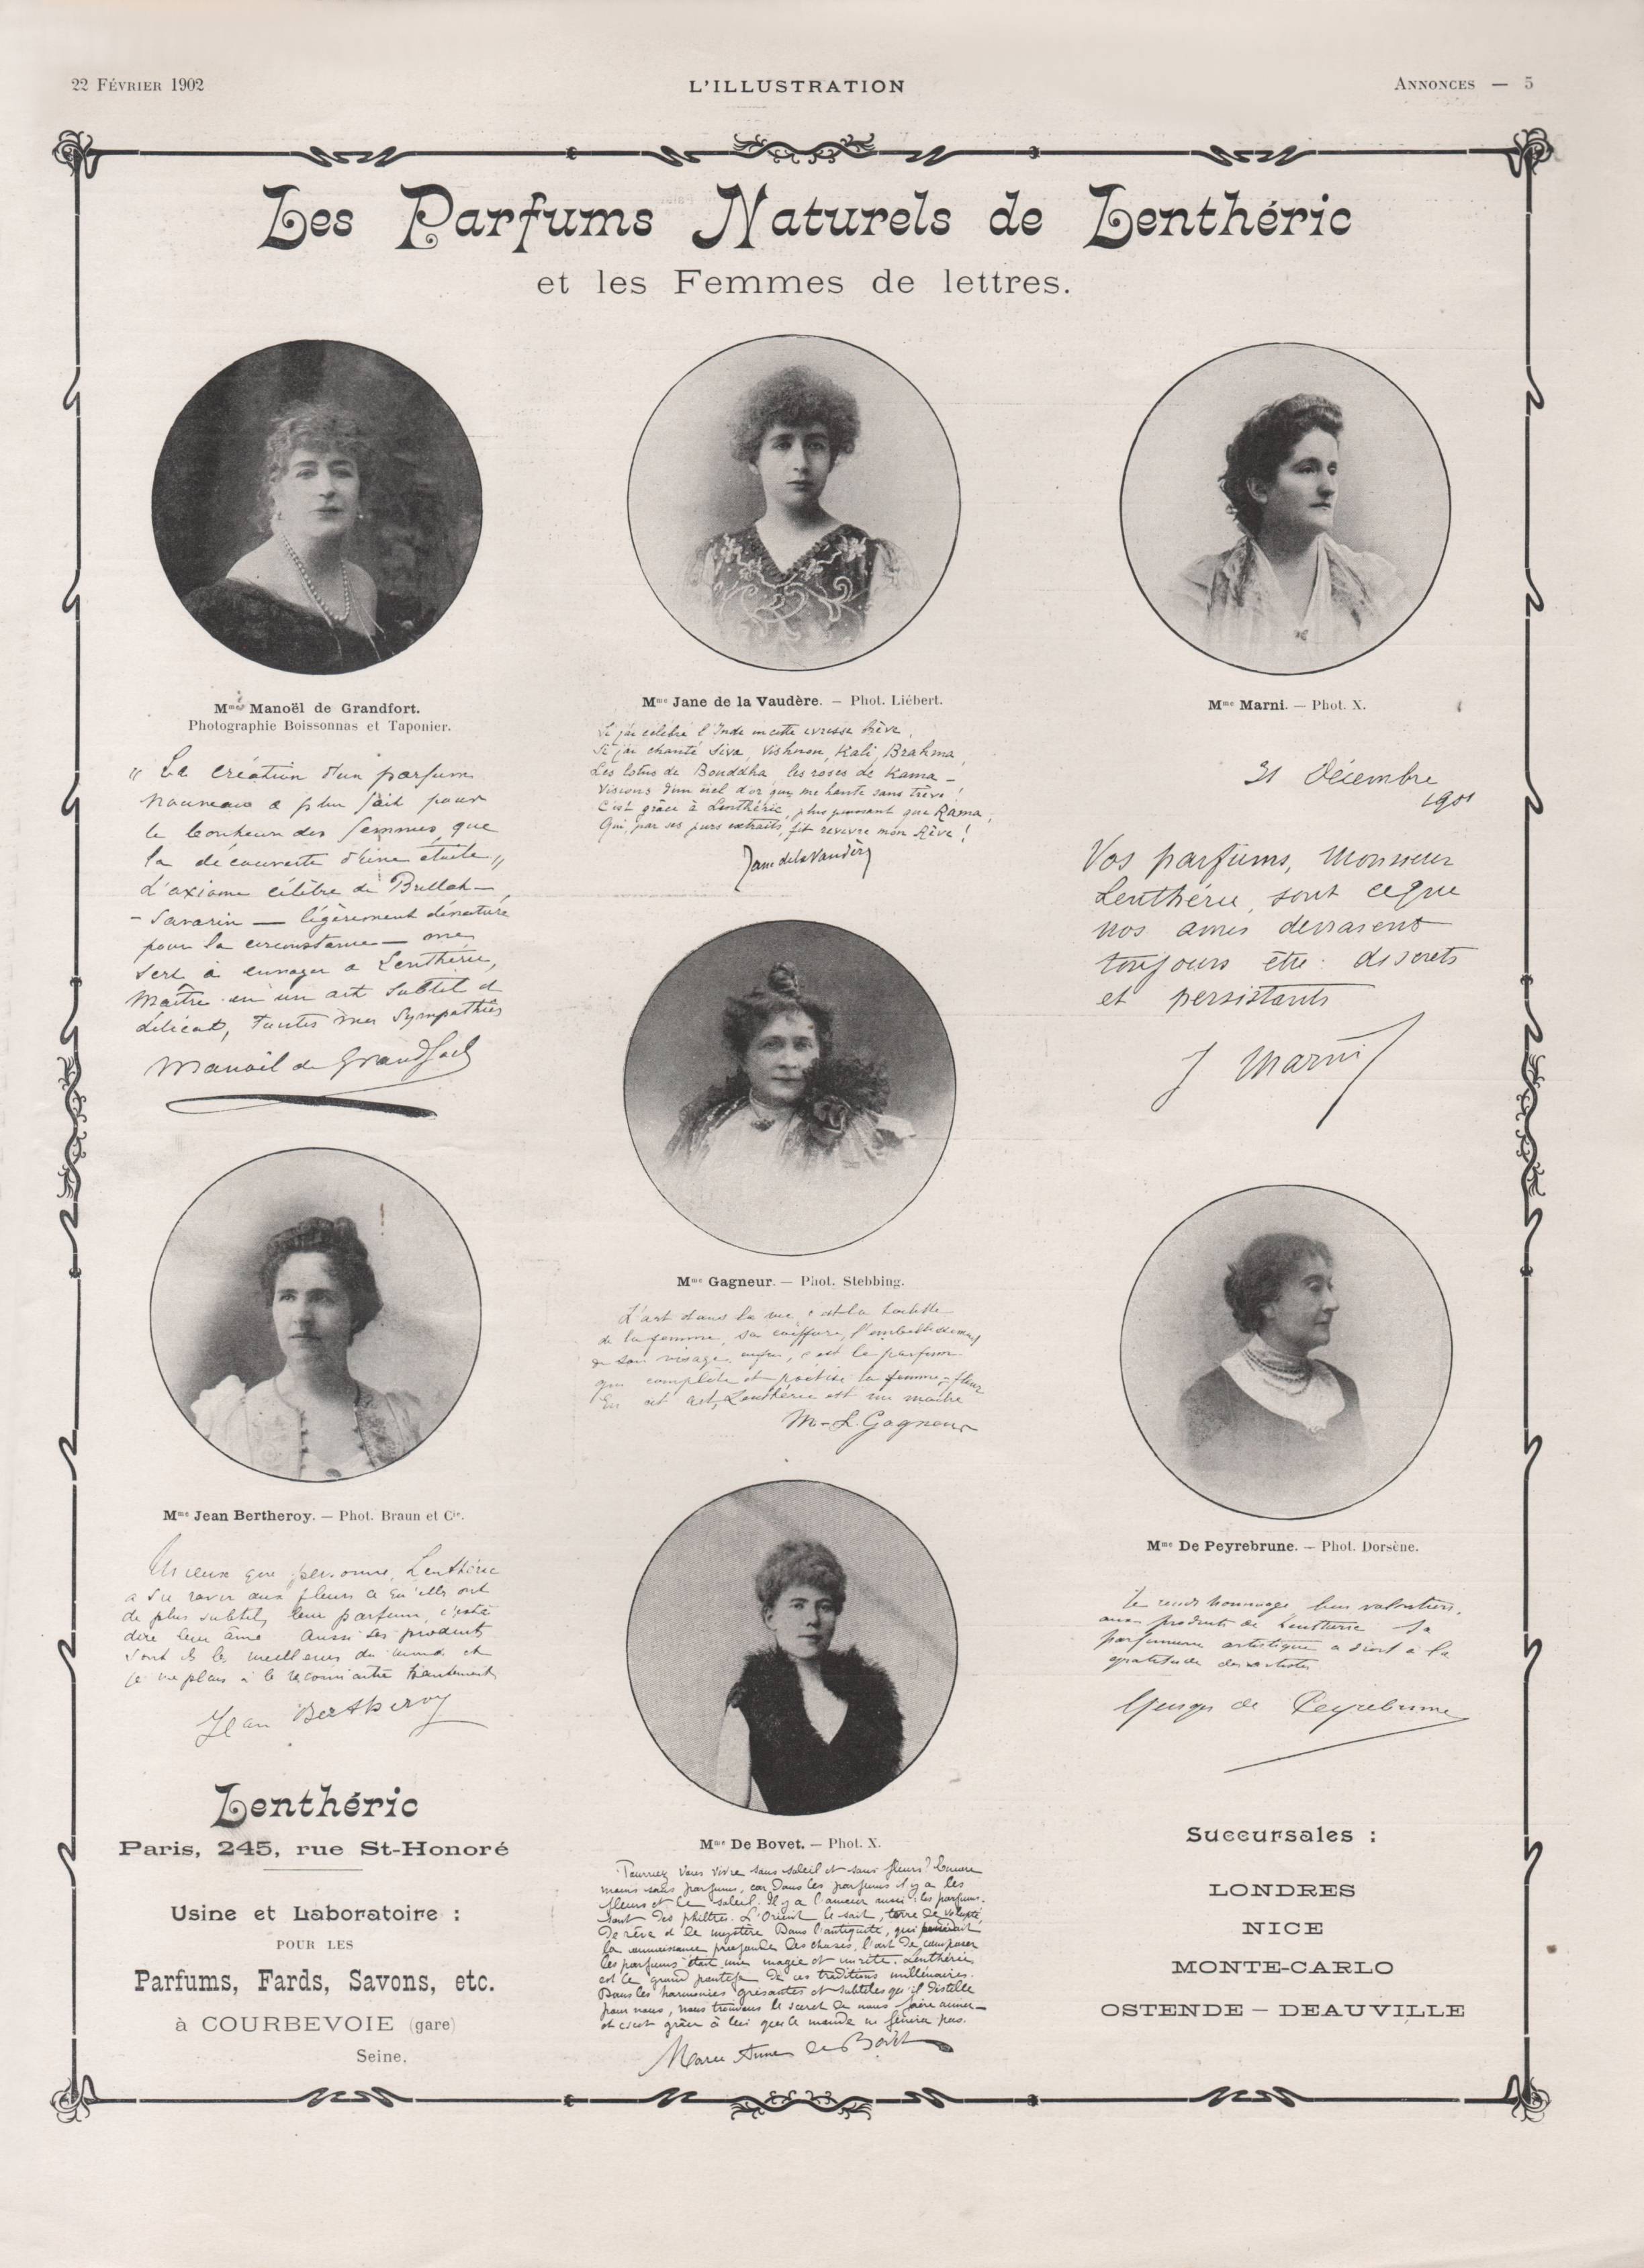 22 Février 1902
L'ILLUSTRATION
Annonces — 5
Les Parfums Naturels de Lenthéric
et les Femmes de lettres.
Mme Manoël de Grandfort.
Photographie Boissonnas et Taponier.
" La création d'un parfum
nouveau a plus fait pour
le bonheur des femmes que
la découverte d'une étoile "
d'axiome célèbre de Brillat-
- Savarin — légèrement dénaturé
pour la circonstance — me
sert à envoyer a Lenthéric,
Maître en un art subtil et
délicat, toutes mes sympathies
Manoël de Grandfort
Mme Jean Bertheroy. — Phot. Braun et Cie.
Mieux que personne, Lenthéric
a su ravir aux fleurs ce qu'elles ont
de plus subtil, leur parfum, c'est à
dire leur âme. Aussi ses produits
sont ils les meilleurs du monde et
je me plais à le reconnaître hautement
Jean Bertheroy
Lenthéric
Paris, 245, rue St-Honoré
Usine et Laboratoire :
POUR LES
Parfums, Fards, Savons, etc.
à COURBEVOIE (gare)
Seine.
Mme Jane de la Vaudère. — Phot. Liébert.
Si j'ai célébré l'Inde en cette ivresse brève,
Si j'ai chanté Siva, Vishnou, Kali, Brahma,
Les lotus de Bouddha, les roses de Kama —
Visions d'un ciel d'or qui me hante sans trêve !
C'est grâce à Lenthéric, plus puissant que Rama,
Qui, par ses purs extraits, fit revivre mon Rêve !
Jane de la Vaudère
Mme Gagneur. — Phot. Stebbing.
L'art dans la vie, c'est la toilette
de la femme, sa coiffure, l'embellissement
de son visage, enfin, c'est le parfum
qui complète et poétise la femme-fleur
En cet art, Lenthéric est un maître
M-L. Gagneur
Mme De Bovet. — Phot. X.
Pourriez vous vivre sans soleil et sans fleurs? Encore
moins sans parfums, car dans les parfums il y a les
fleurs et le soleil. Il y a l'amour aussi : les parfums
sont des philtres. L'Orient le sait, terre de volupté,
de rêve et de mystère. Dans l'antiquité, qui possédait
la connaissance profonde des choses, l'art de composer
les parfums était une magie et un rite. Lenthéric
est le grand pontife de ces traditions millénaires.
Dans les harmonies grisantes et subtiles qu'il distille
pour nous, nous trouvons le secret de nous faire aimer —
et c'est grâce à lui que le monde ne finira pas.
Marie Anne de Bovet
Mme Marni. — Phot. X.
31 Décembre
1901
Vos parfums, Monsieur
Lenthéric, sont ce que
nos amis devraient
toujours être : discrets
et persistants
J Marni
Mme De Peyrebrune. — Phot. Dorsène.
Je rends hommage bien volontiers,
aux produits de Lenthéric. Sa
parfumerie artistique a droit à la
gratitude des artistes
Georges de Peyrebrune
Succursales :
LONDRES
NICE
MONTE-CARLO
OSTENDE — DEAUVILLE